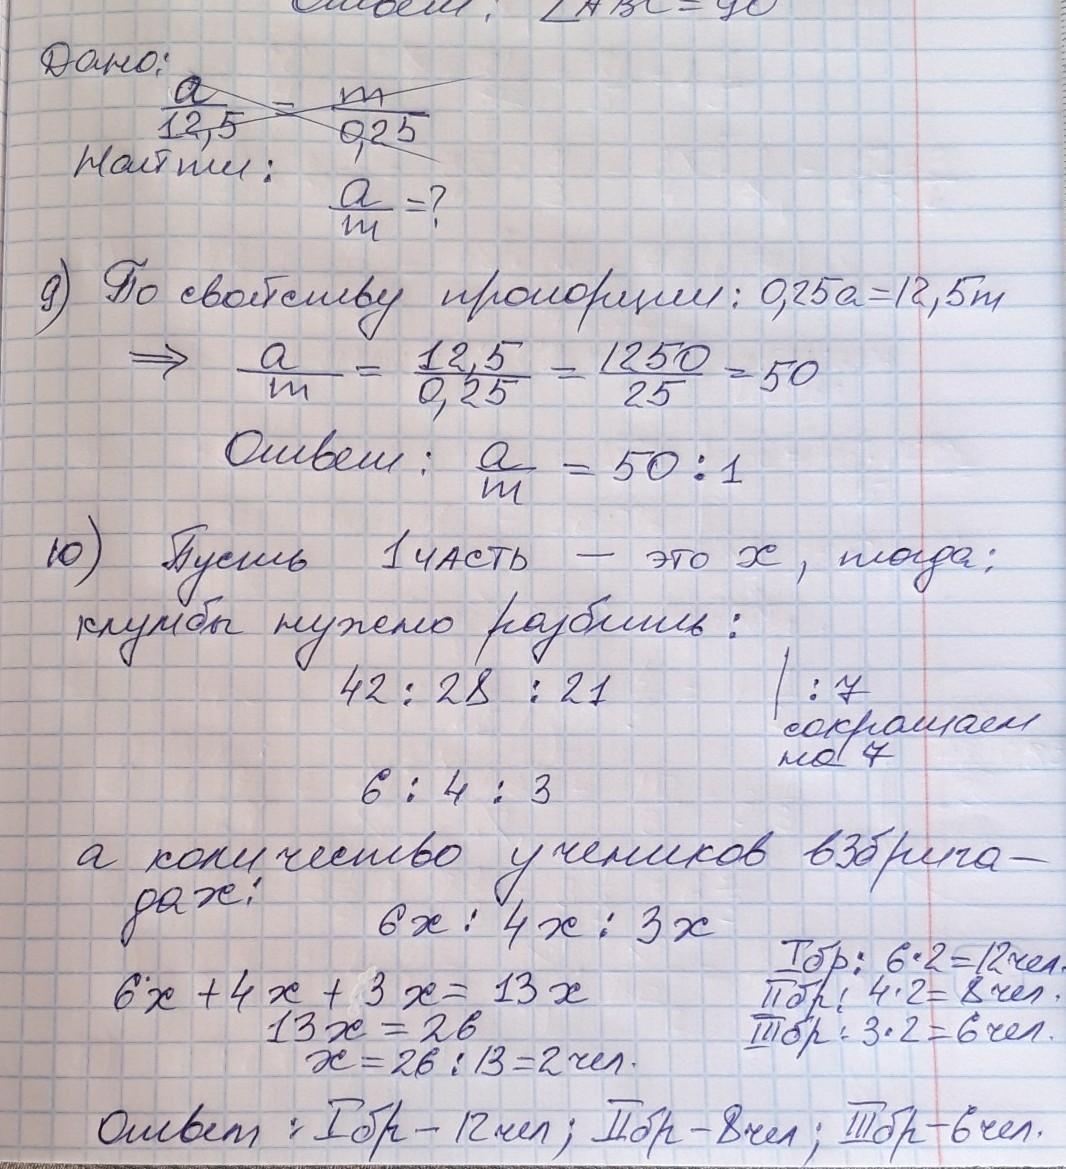 Ответ: ∠ABC = 90
Дано:
a/12,5 = m/0,25
Найти:
a/m = ?
9) По свойству пропорции: 0,25a = 12,5m
⇒ a/m = 12,5/0,25 = 1250/25 = 50
Ответ: a/m = 50 : 1
10) Пусть 1 часть — это x, тогда:
клумбы нужно разбить:
42 : 28 : 21 | : 7
сокращаем
на 7
6 : 4 : 3
а количество учеников в 3 брига-
дах:
6x : 4x : 3x
6x + 4x + 3x = 13x
13x = 26
x = 26 : 13 = 2 чел.
I бр: 6·2 = 12 чел.
II бр: 4·2 = 8 чел.
III бр: 3·2 = 6 чел.
Ответ: I бр – 12 чел; II бр – 8 чел; III бр – 6 чел.